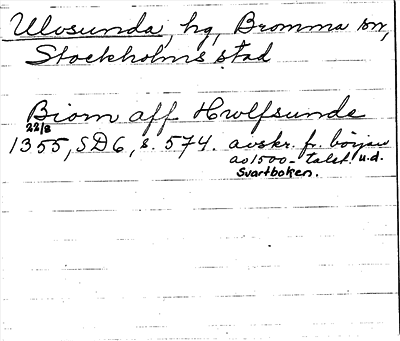 Ulvsunda, hg, Bromma sn,
Stockholms stad
Biorn aff Hwlfsunde
22/8
1355, SD6, s. 574. avskr. fr. början
av 1500-talet u.d.
Svartboken.